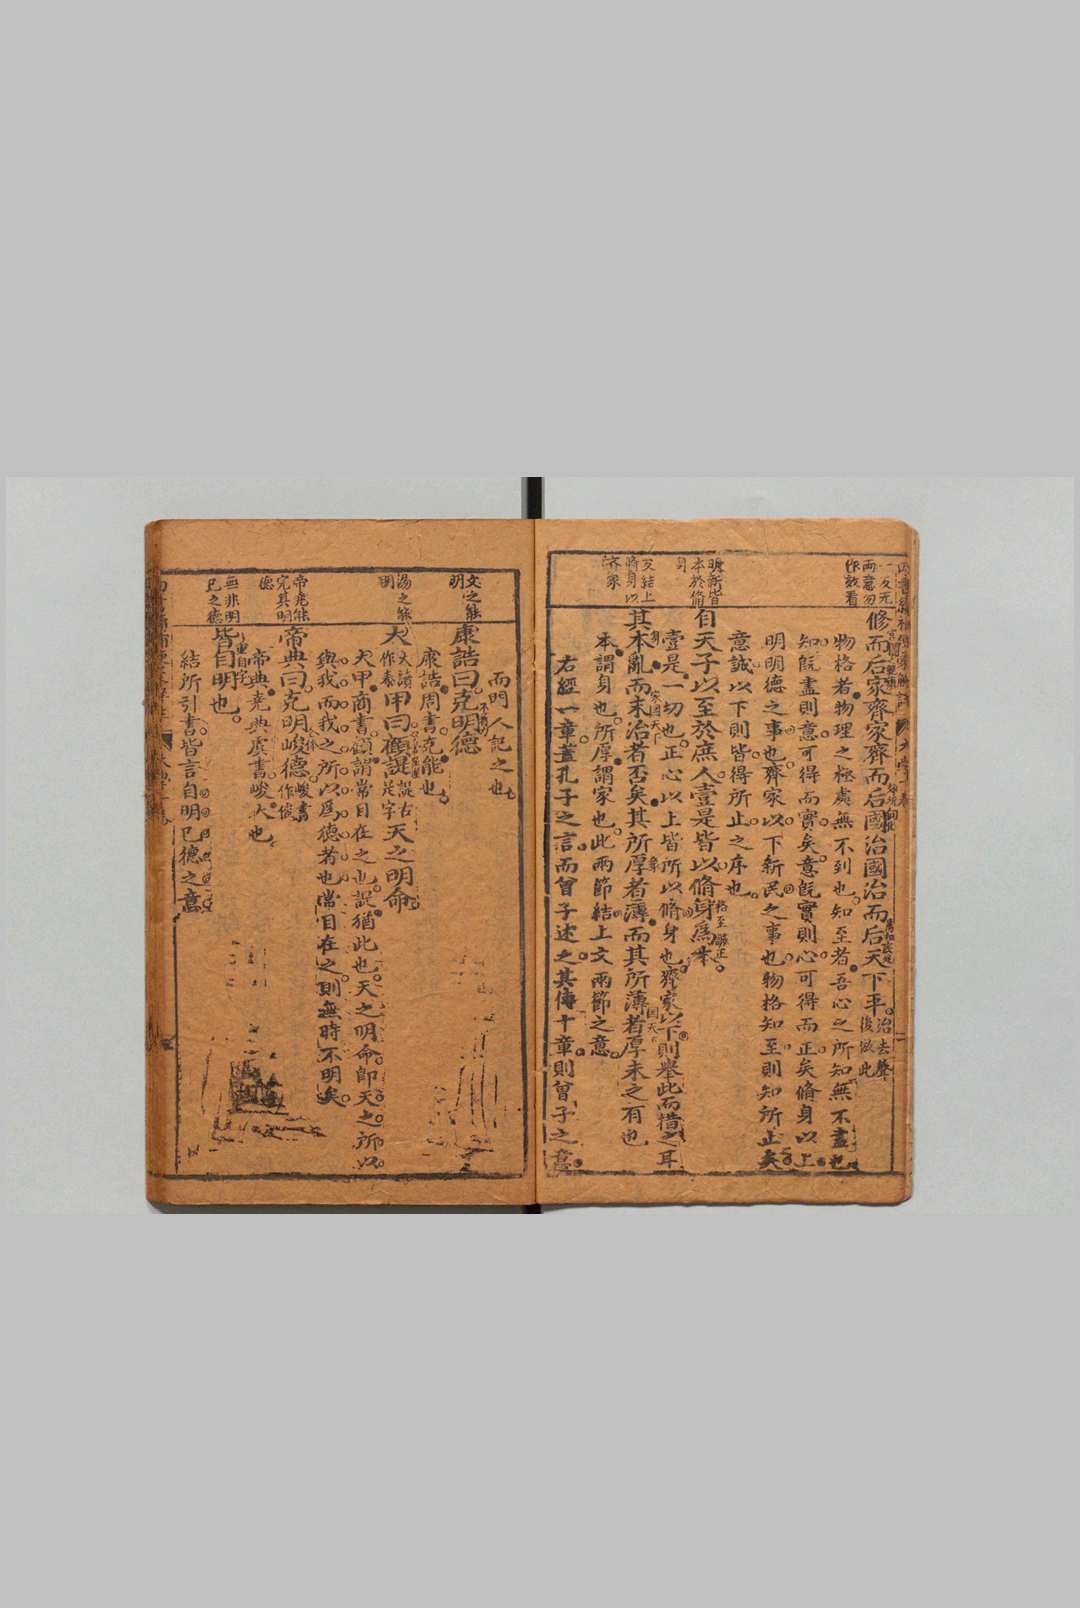 一反无
兩意勿
作效看
修而后家齊家齊而后國治國治而后天下平。治去聲後放此
物格者物理之極處無不到也知至者吾心之所知無不盡也
知旣盡則意可得而實矣意旣實則心可得而正矣脩身以上
明明德之事也齊家以下新民之事也物格知至則知所止矣
意誠以下則皆得所止之序也
明新皆
本於脩
身
自天子以至於庶人壹是皆以脩身爲本
壹是一切也正心以上皆所以脩身也齊家以下則舉此而措之耳
又結上
脩身以
齐家
其本亂而末治者否矣其所厚者薄而其所薄者厚未之有也
本謂身也所厚謂家也此兩節結上文兩節之意
右經一章蓋孔子之言而曾子述之其傳十章則曾子之意
而門人記之也
文之能
明
康誥曰克明德
康誥周書克能也
湯之能
明
大大讀作泰甲曰顧諟諟古是字天之明命
大甲商書顧謂常目在之也諟猶此也天之明命卽天之所以
與我而我之所以爲德者也常目在之則無時不明矣
帝堯能
完其明
德
帝典曰克明峻德峻書作俊
帝典堯典虞書峻大也
無非明
已之德
皆自明也
重自字
結所引書皆言自明已德之意